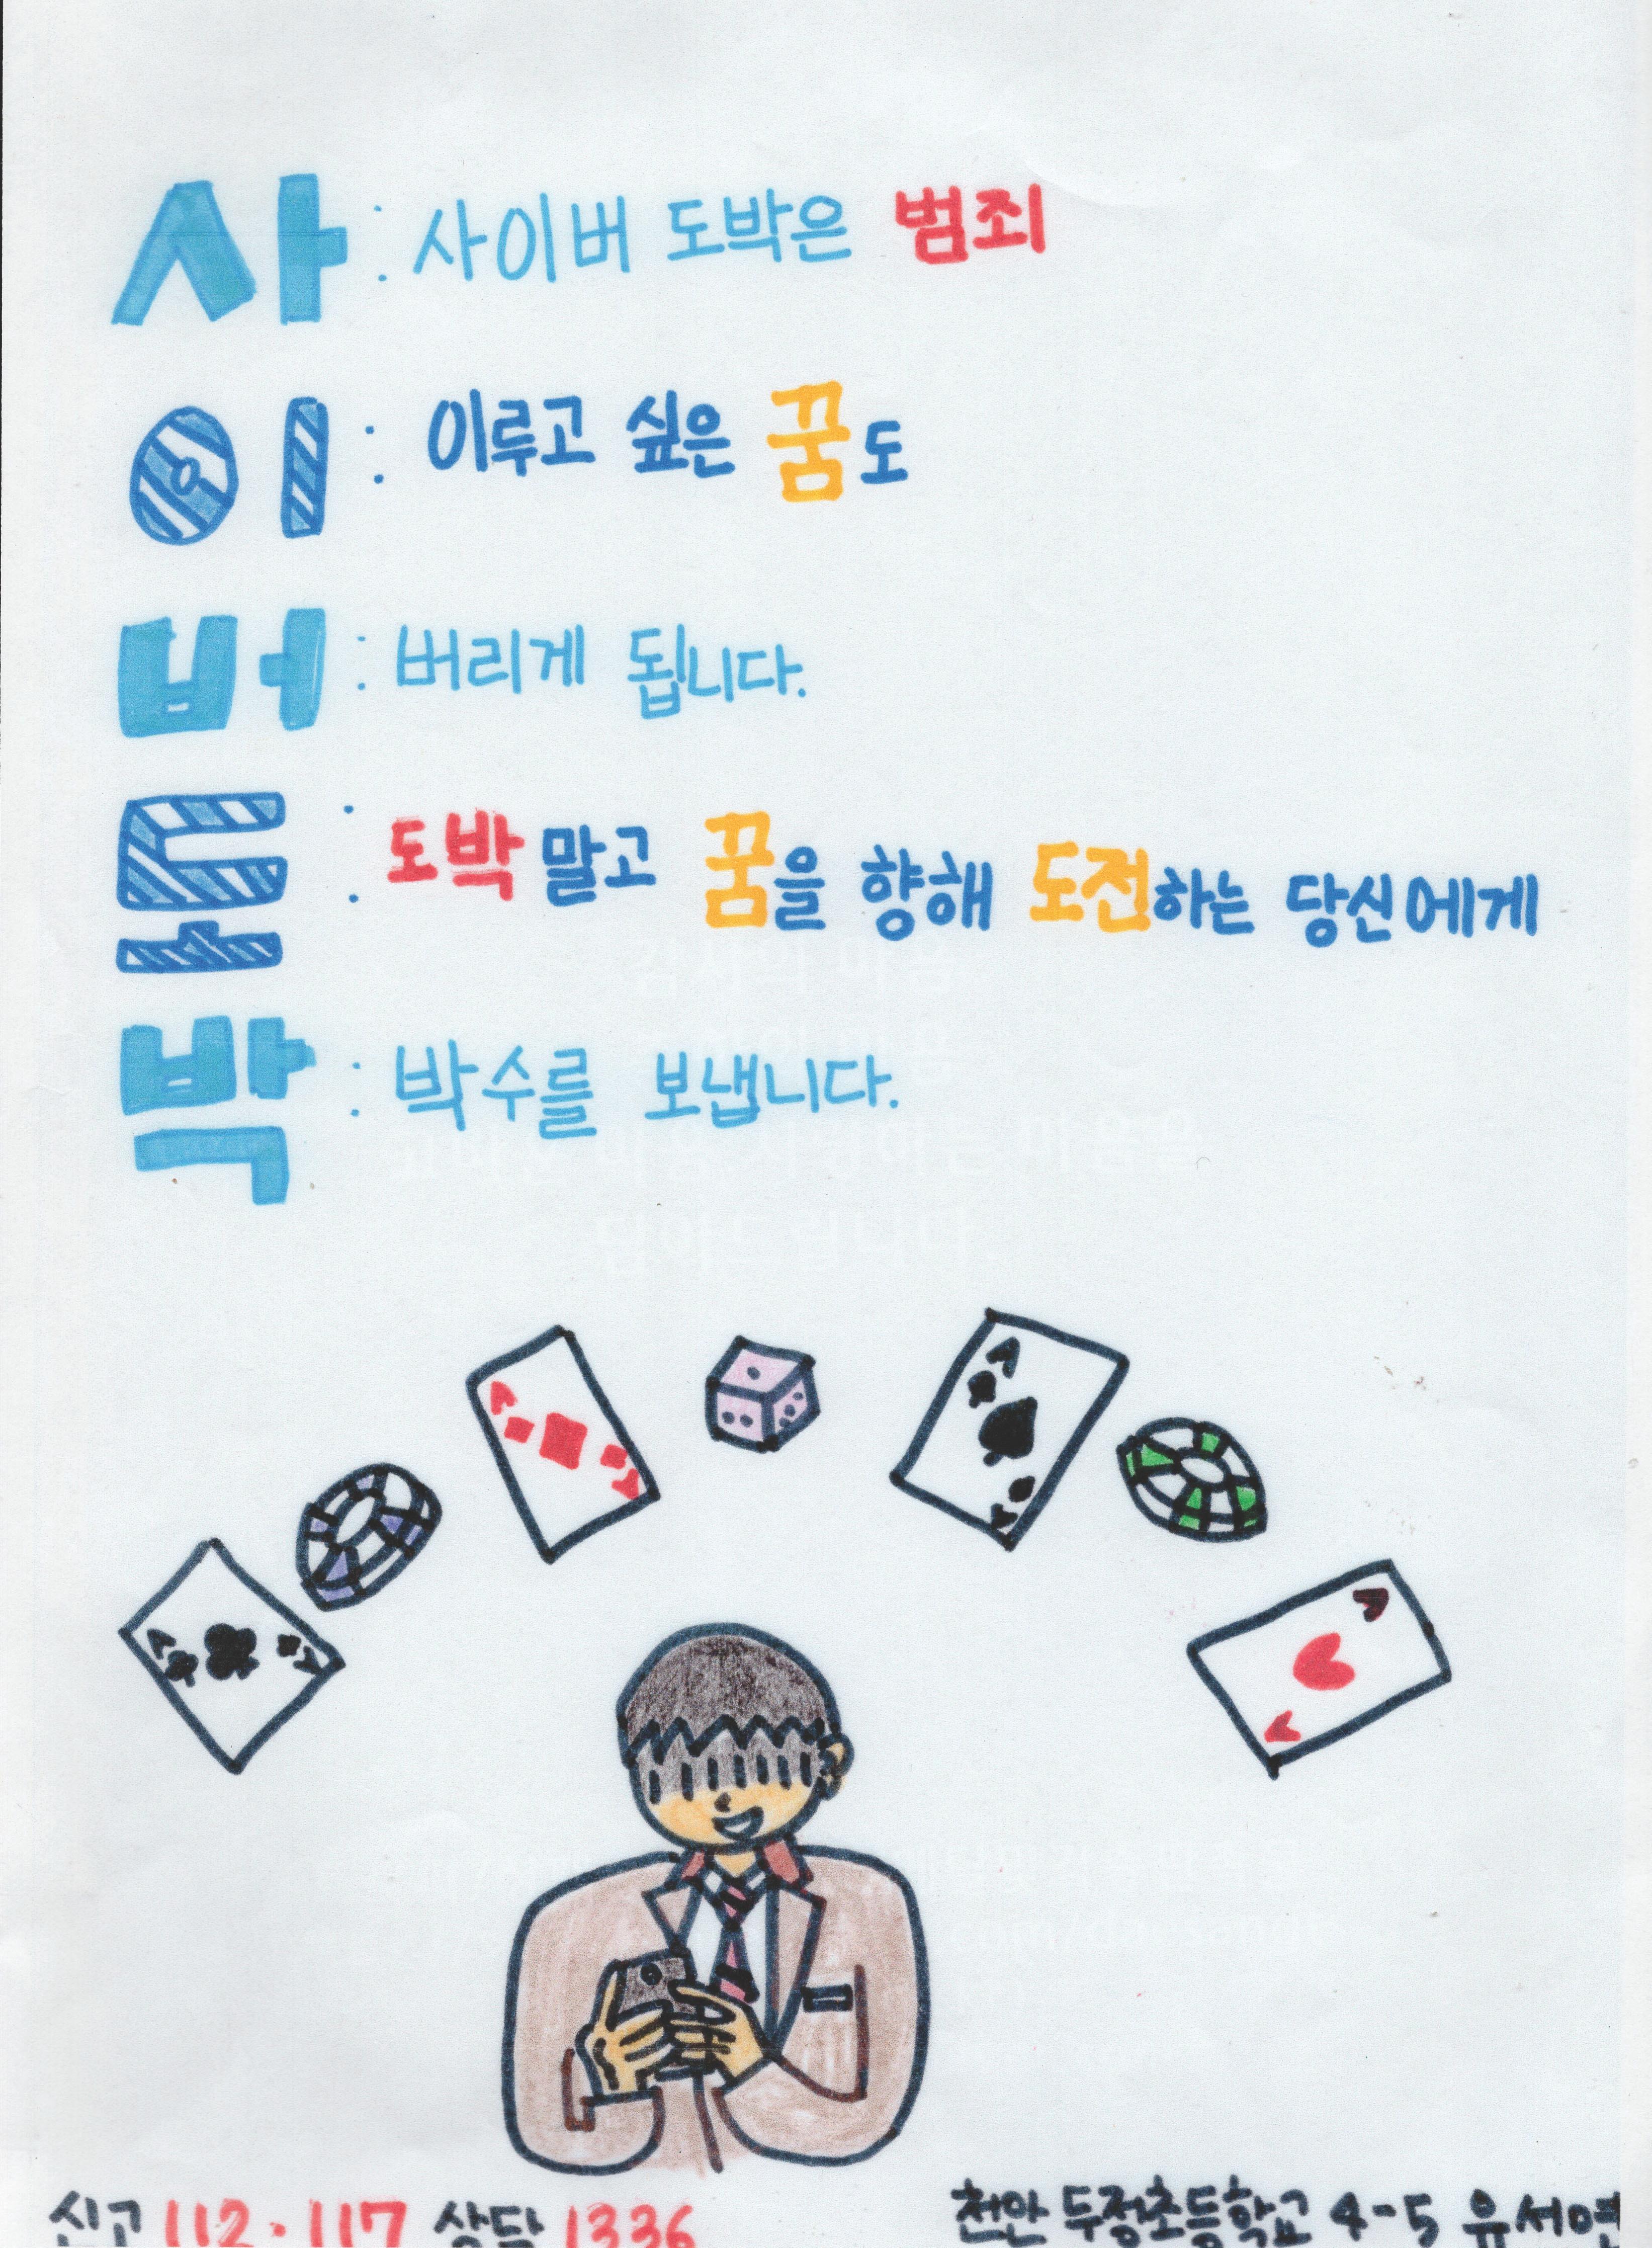 사 : 사이버 도박은 범죄
이 : 이루고 싶은 꿈도
버 : 버리게 됩니다.
도 : 도박 말고 꿈을 향해 도전하는 당신에게
박 : 박수를 보냅니다.
A A
A A
A A
A A
신고 112·117 상담 1336
천안 두정초등학교 4-5 유서연